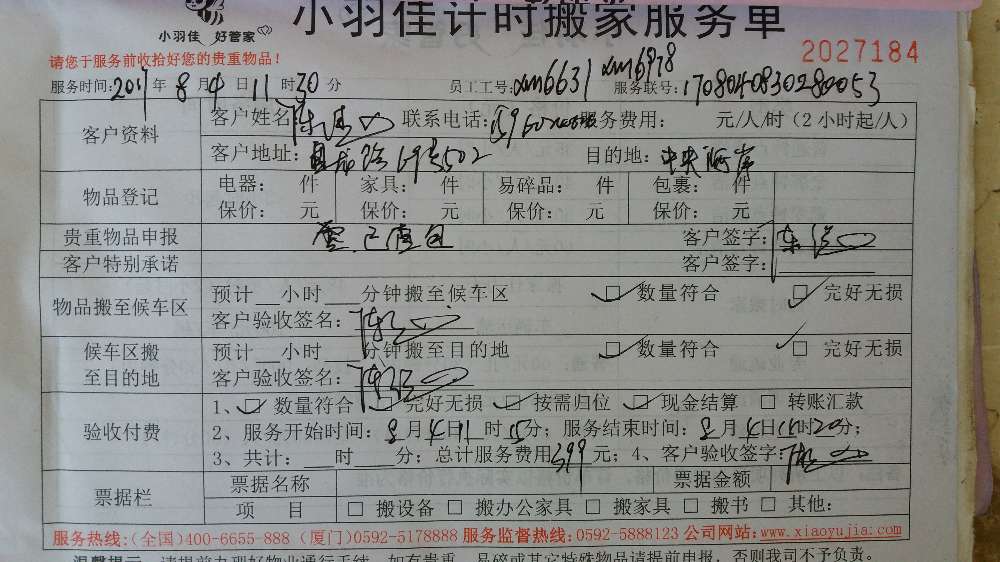 小羽佳计时搬家服务单
小羽佳 好管家
2027184
请您于服务前收拾好您的贵重物品！
服务时间: 2017 年 8 月 4 日 11 时 30 分 员工工号: xm6631 xm6978 服务联号: 1708040830280053
客户资料 客户姓名: 陈 联系电话: 服务费用: 元/人/时（2小时起/人）
客户地址: 路69号502 目的地: 中央海岸
物品登记 电器: 件 家具: 件 易碎品: 件 包裹: 件
保价: 元 保价: 元 保价: 元 保价: 元
贵重物品申报 客户签字: 陈
客户特别承诺 客户签字:
物品搬至候车区 预计__小时___分钟搬至候车区 ☑ 数量符合 ☑ 完好无损
客户验收签名: 陈
候车区搬至目的地 预计__小时___分钟搬至目的地 ☑ 数量符合 ☑ 完好无损
客户验收签名: 陈
验收付费 1、☑ 数量符合 ☑ 完好无损 ☑ 按需归位 ☑ 现金结算 □ 转账汇款
2、服务开始时间: 8 月 4 日 11 时 15 分；服务结束时间: 8 月 4 日 时 20 分；
3、共计: ___时____分；总计服务费用 399 元；4、客户验收签字:
票据栏 票据名称 票据金额
项 目 □ 搬设备 □ 搬办公家具 □ 搬家具 □ 搬书 □ 其他:
服务热线:(全国)400-6655-888 (厦门)0592-5178888 服务监督热线:0592-5888123 公司网站:www.xiaoyujia.com
温馨提示 请提前办理好物业通行手续，如有贵重、易碎或其它特殊物品请提前申报，否则我司不予负责。